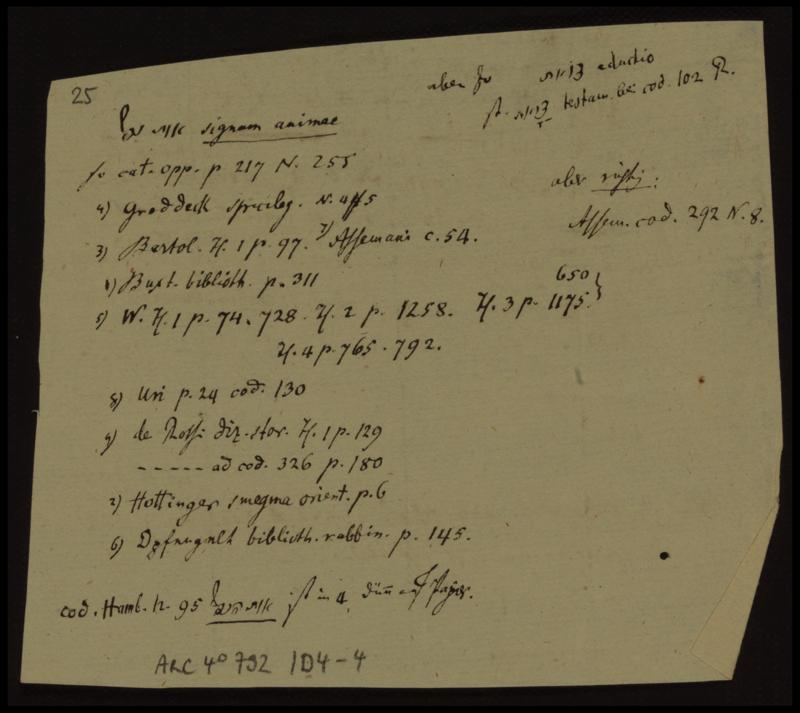 25
aber
eductio
testam. bei cod. 102 R.
signum animae
cat. opp. p 217 N. 255
aber richtig:
4) Groddeck spicileg. N. 5
Assem. cod. 292 N. 8.
3) Bartol. Th. 1 p. 97. 7) Assemani c. 54.
1) Buxt. biblioth. p. 311
650
5) W. Th. 1 p. 74. 728. Th. 2 p. 1258. Th. 3 p. 1175.
Th. 4 p. 765. 792.
8) Uri p. 24 cod. 130
9) de Rossi diz. stor. Th. 1 p. 129
----- ad cod. 326 p. 180
2) Hottinger smegma orient. p. 6
6) biblioth. rabbin. p. 145.
cod. Hamb. h. 95 ist in 4. dünn auf Papier.
ARC 4° 792 /D4-4